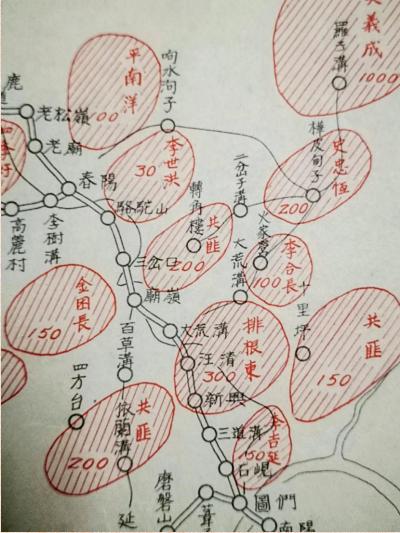 義成
1000
羅子溝
平南洋
100
响水河子
鹿
老松嶺
老廟
李世洪
30
樺皮甸子
史忠恒
200
二岔子溝
春陽
駱駝山
高麗村
李樹溝
轉角樓
共匪
200
火家營
大荒溝
李合長
100
三岔口
廟嶺
金田長
150
十里坪
共匪
150
百草溝
大荒溝
汪清
排根東
300
四方台
新興
依蘭溝
共匪
200
三道溝
李吉延
150
石峴
磨盤山
圖們
延
南陽